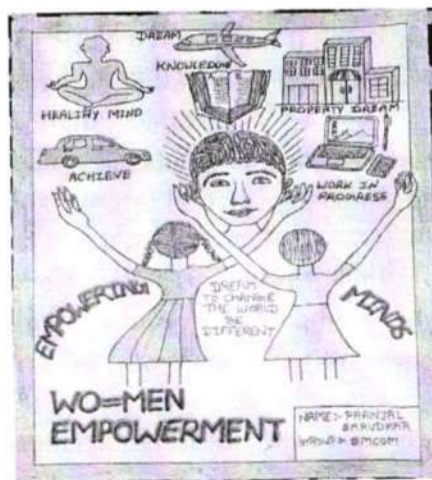 DREAM
KNOWLEDGE
HEALTHY MIND
PROPERTY DREAM
ACHIEVE
WORK IN
PROGRESS
EMPOWERING
MINDS
DREAM
TO CHANGE
THE WORLD
BE
DIFFERENT
WO=MEN
EMPOWERMENT
NAME:- PRANJAL